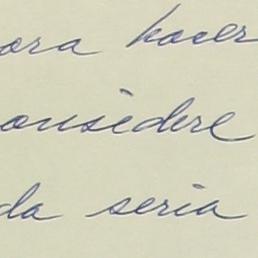 ora hacer
considere
da seria